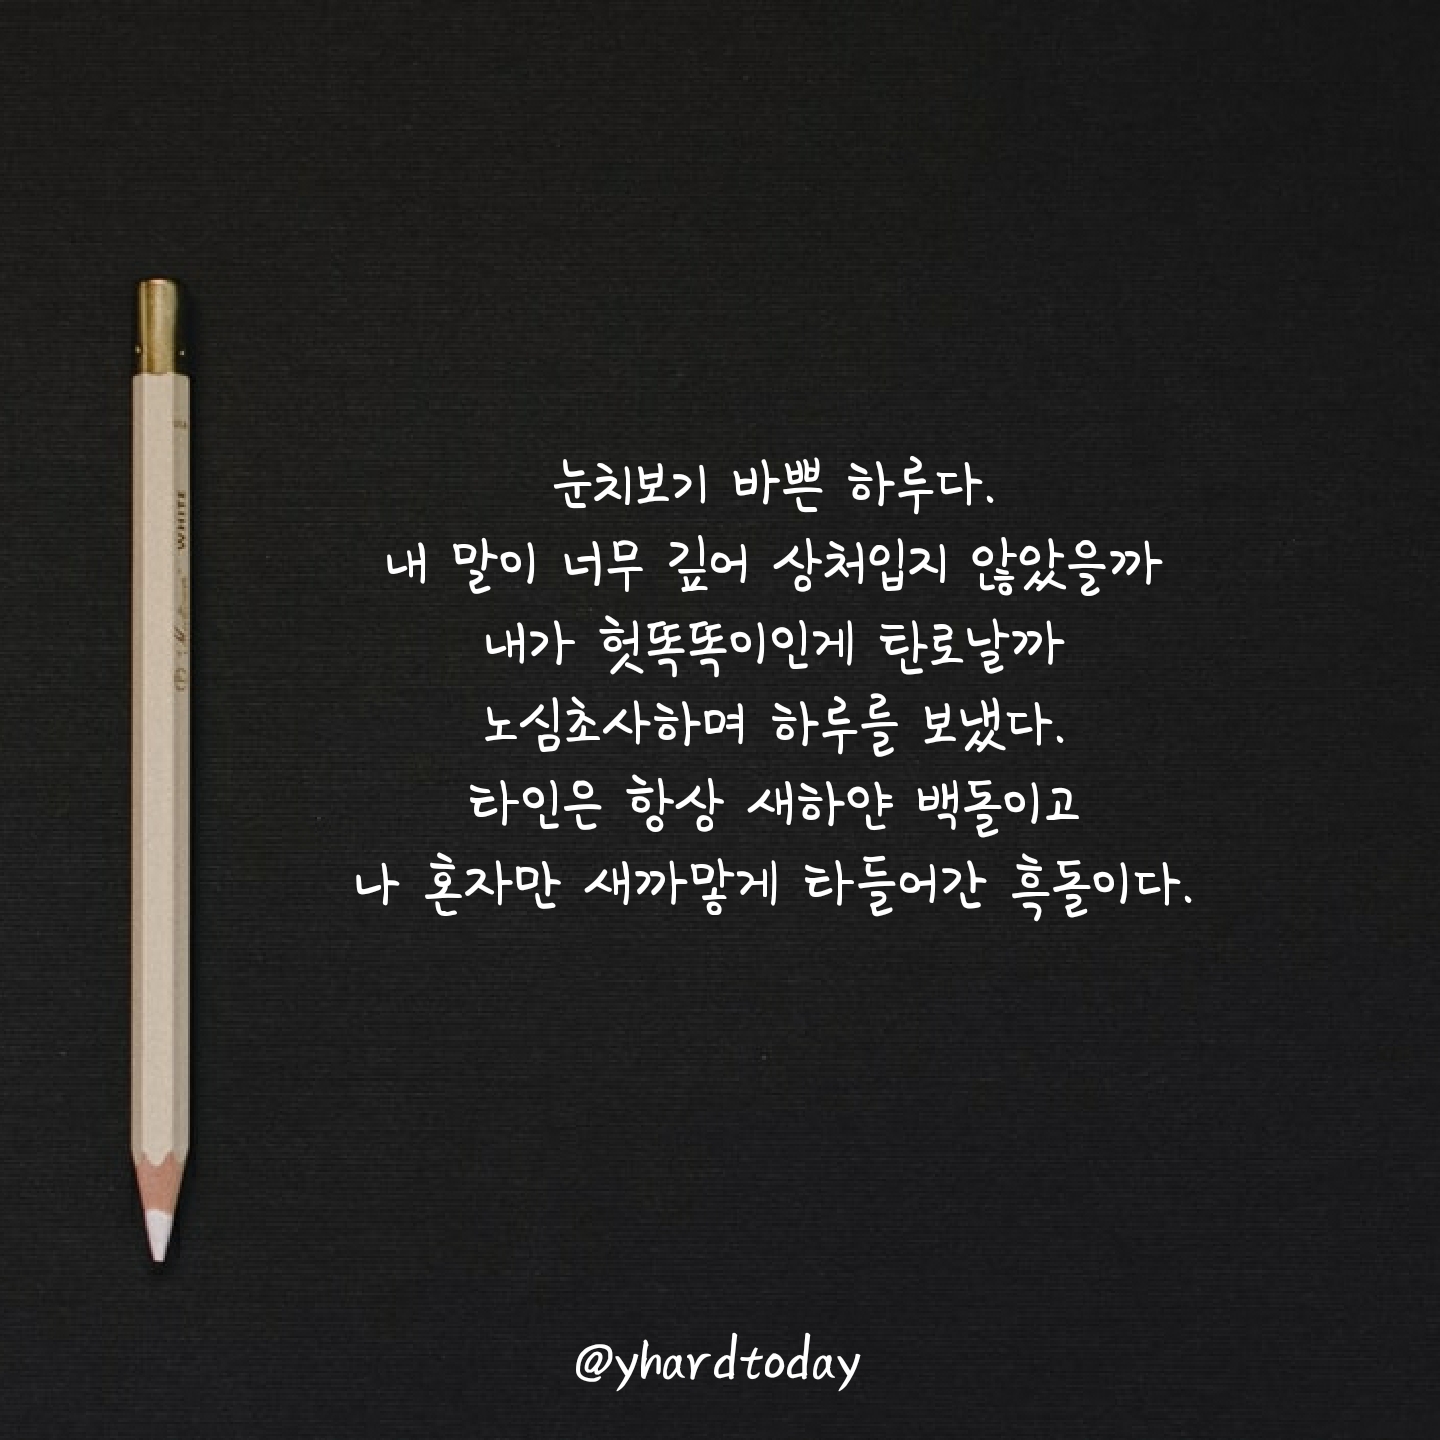 눈치보기 바쁜 하루다.
내 말이 너무 깊어 상처입지 않았을까
내가 헛똑똑이인게 탄로날까
노심초사하며 하루를 보냈다.
타인은 항상 새하얀 백돌이고
나 혼자만 새까맣게 타들어간 흑돌이다.
WHITE
@yhardtoday